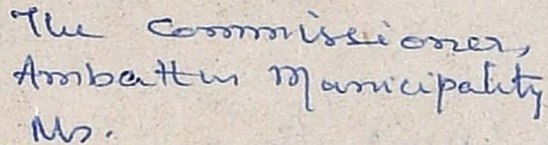 The Commissioner,
Ambattur Municipality
Ms.